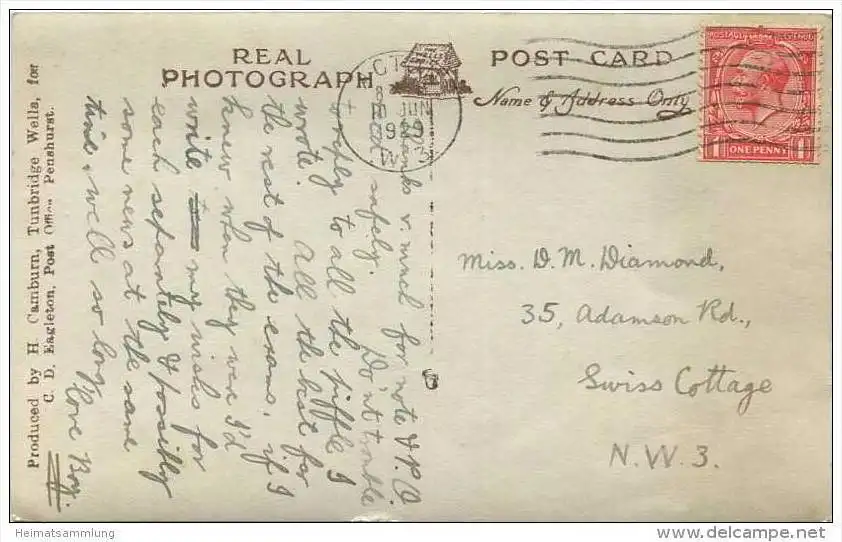 REAL
PHOTOGRAPH
POST CARD
Name & Address Only
POSTAGE REVENUE
ONE PENNY
8
JUN
1929
W
Miss. D. M. Diamond,
35, Adamson Rd.,
Swiss Cottage
N.W.3.
Thanks v. much for note & P.O.
Recd. safely. Do'nt trouble
to reply to all the piffle I
wrote. All the best for
the rest of the exams. if I
knew when they were I'd
write my wishes for
each separately & possibly
some news at the same
time, well so long
love Boy.
Produced by H. Camburn, Tunbridge Wells, for
C. D. Eagleton, Post Office Penshurst.
Heimatsammlung
www.delcampe.net